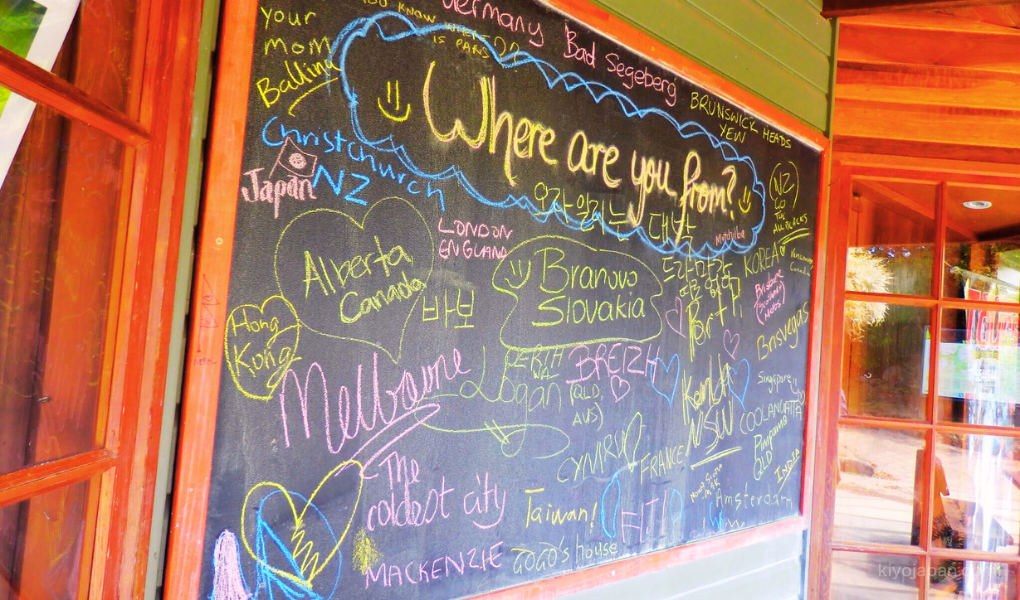 your
mom
Balling
YOU KNOW WHERE
IS PARIS ??
Germany
Bad Segeberg
BRUNSWICK HEADS
YEW
Where are you from?
Christchurch
NZ
Japan
NZ
GO
ALL BLACKS
LONDON
ENGLAND
Alberta
Canada
바보
Branovo
Slovakia
KOREA
Vancouver
Canada
Perth
Brisvegas
Hong
Kong
Melbourne
PERTH
Logan
(QLD,
AUS)
BREIZH
NSW
Singapore
COOLANGATTA
Pimpama
QLD
INDIA
CYMRU
FRANCE
The
coldest city
Taiwan!
Amsterdam
MACKENZIE
GOGO's house
kiyojapan.com